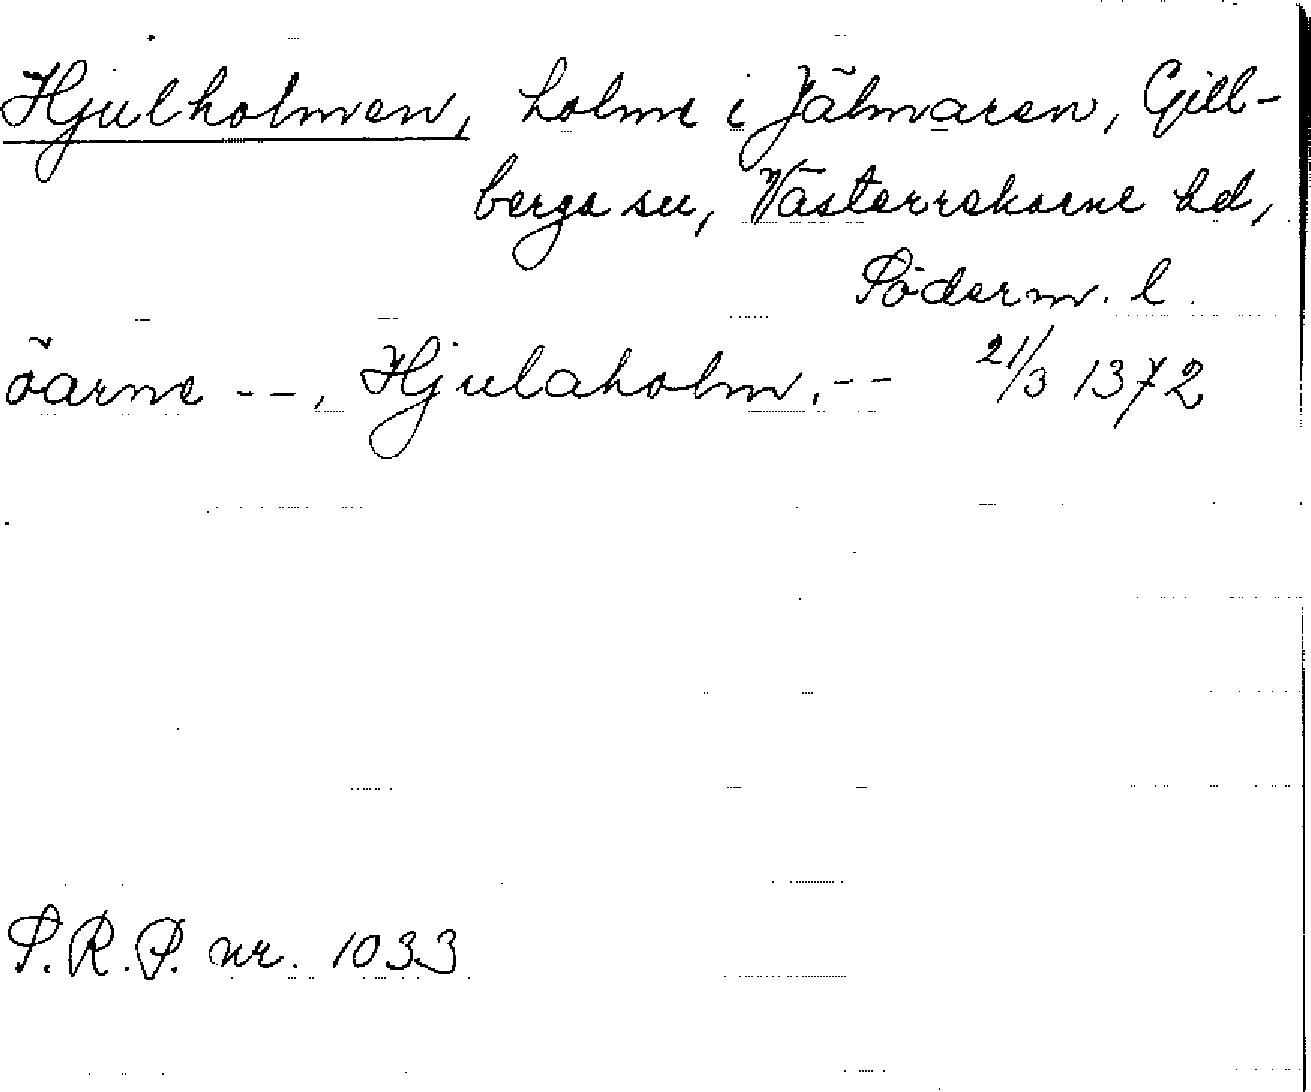 Hjulholmen, holme i Jälmaren, Gill-
berga sn, Västerrekarne hd,
Söderm. l.
öarne --, Hjulaholm. -- 21/3 1372
S.R.P. nr. 1033